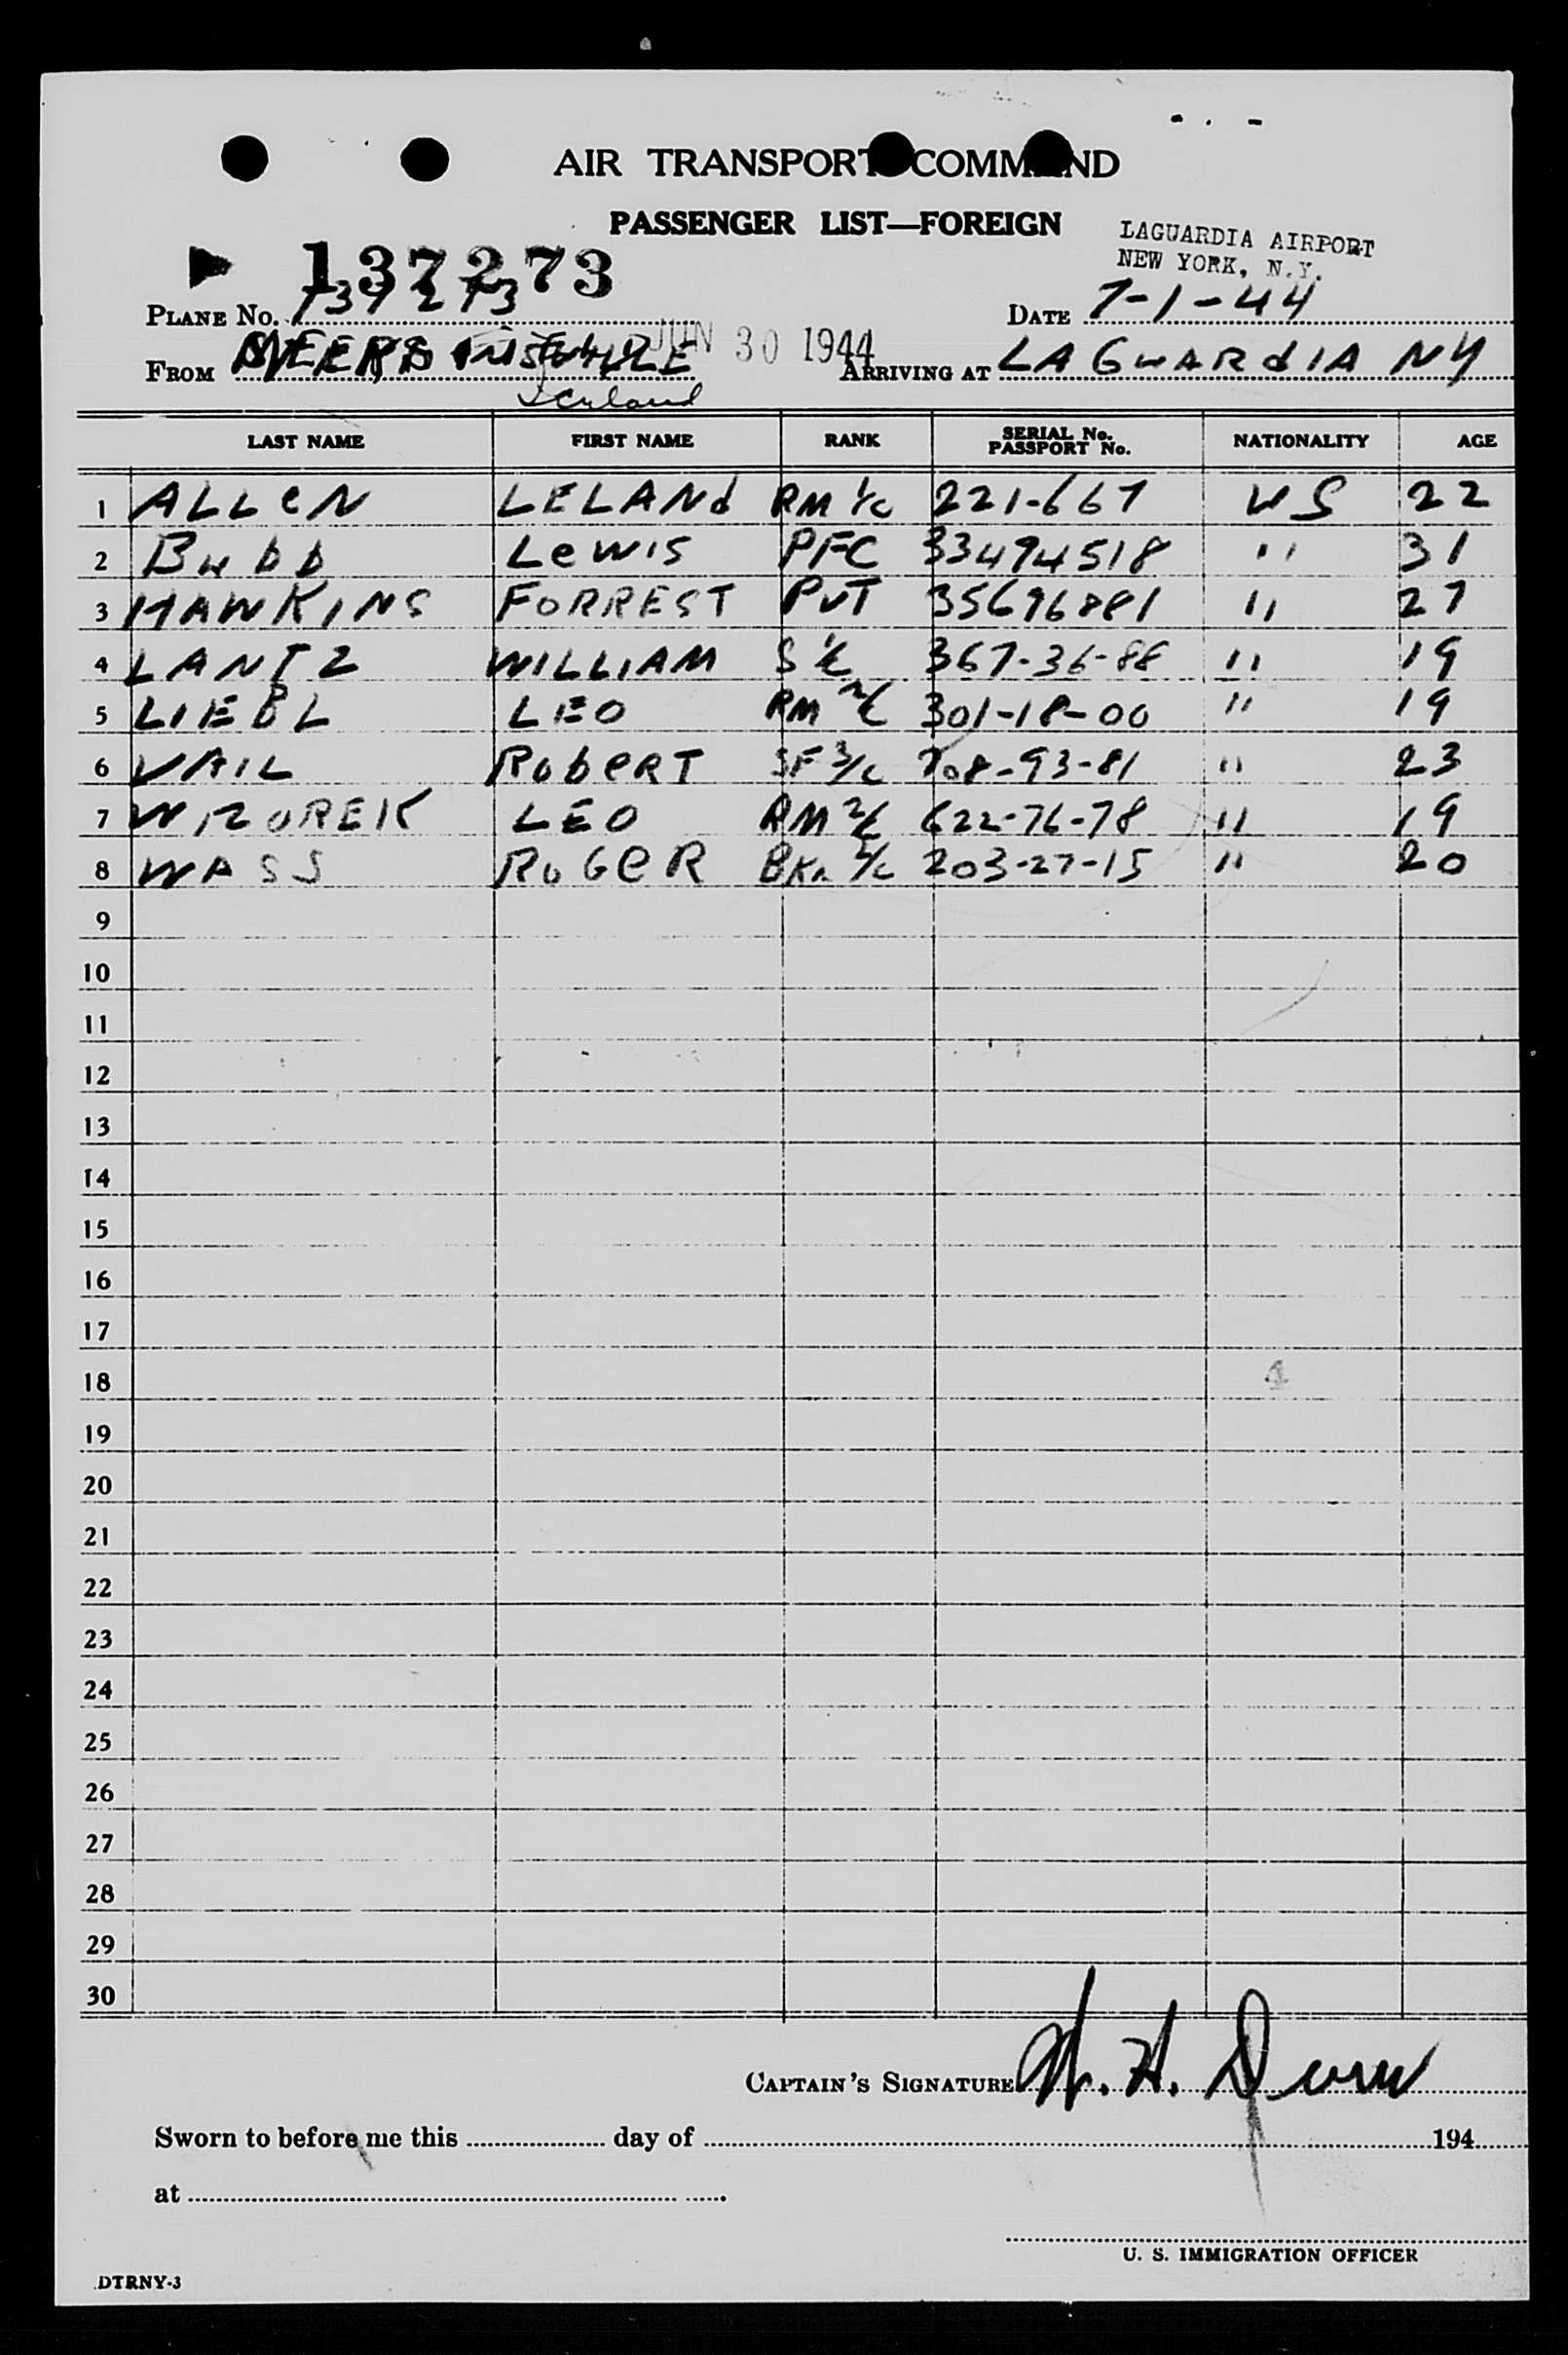 AIR TRANSPORT COMMAND
PASSENGER LIST—FOREIGN
LAGUARDIA AIRPORT
NEW YORK, N.Y.
137273
PLANE No. 137273
DATE 7-1-44
JUN 30 1944
FROM
ARRIVING AT LA GuARdIA NY
Iceland
LAST NAME FIRST NAME RANK SERIAL No. PASSPORT No. NATIONALITY AGE
1 ALLeN LELANd RM 1/c 221-667 US 22
2 BuDD LeWIS PFC 33494518 " 31
3 HAWKINS FORREST PVT 35696881 " 27
4 LANTZ WILLIAM S 1/c 367-36-88 " 19
5 LIEBL LEO RM 2/c 301-18-00 " 19
6 VAIL RobeRT SF 3/c 708-93-81 " 23
7 LEO RM 2/c 622-76-78 " 19
8 WASS RoGeR BKR 203-27-15 " 20
9
10
11
12
13
14
15
16
17
18
19
20
21
22
23
24
25
26
27
28
29
30
CAPTAIN'S SIGNATURE
Sworn to before me this day of 194
at
U. S. IMMIGRATION OFFICER
DTRNY-3